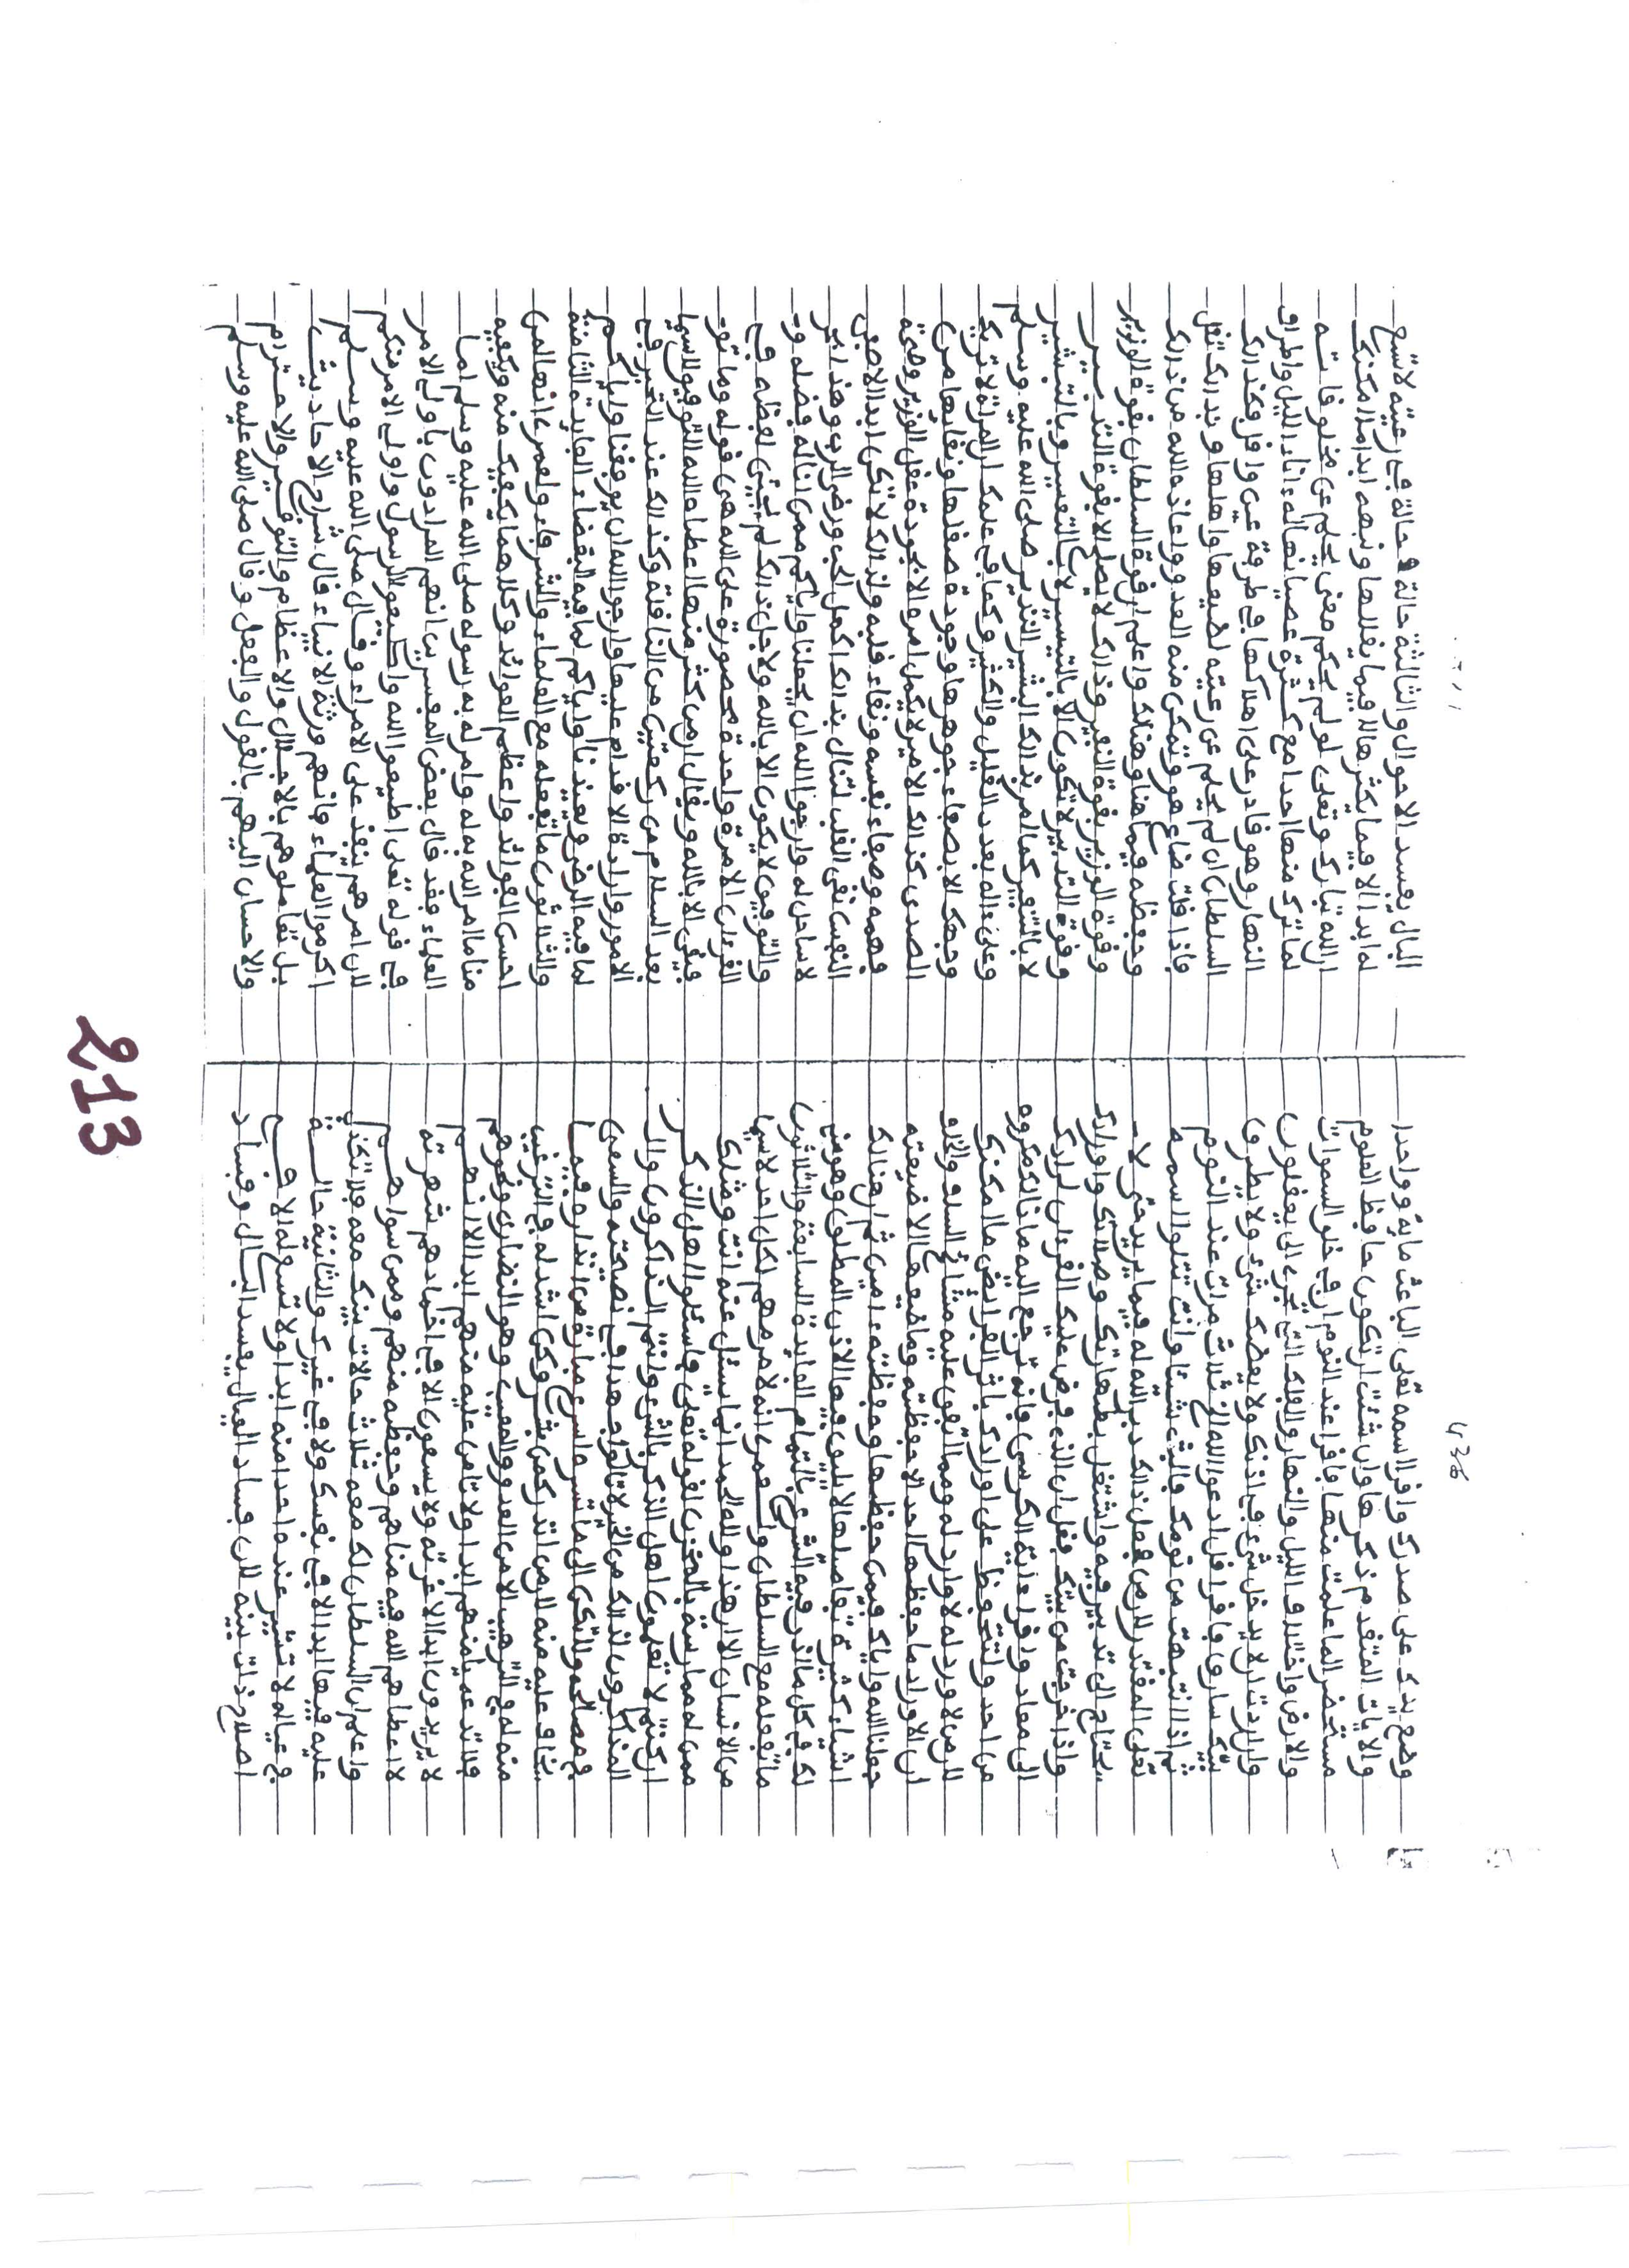 436
وضع يدك على صدرك واقرا اسمه تعلى الباعث ماية وواحدا
والايات المتقدم ذكرها وان شئت ان تكون حافظ العلوم
مستحضر الما علمت منها فاقرا عند النوم ان في خلق السموات
والارض واختلاف الليل والنهار والفلك التي تجري الى يعقلون
وان اردت ان لا يدخل شيء في اذنك ولا يعضك شيء ولا يطرق
بيتك سارق فاقرا قل ادعوا الله الخ ثلاث مرات عند النوم
ثم اذا انتبهت من نومك فالبث شيئا وانت تتلوا اسمه
تعلى المقتدر لان من فعل ذالك دبر الله له فيما يريد حتى لا
يحتاج الى تدبير فيه واشتغل بطهارتك وصلاتك واورادك
واذا خرجت من بيتك فقل ان الذي فرض عليك القرءان لرادك
الى معاد واقرا ءاية الكرسي فانه ترجع اليه مانا لك مكروه
من احد ولتحفظ على اورادك باثر الفرائض ما امكنك
لان من لا ورد له لا وارد له ومما اتفق عليه مشائخ السلف والخلف
ان الاوراد ما حفظها احد الا حفظته وما ضيعها الا ضيعته
جعلنا الله واياك فيمن حفظها وحفظته ءامين ثم ان هنالك
اشياء كثيرة تفاصلها لا يليق فيها الاذن المطلق وهو مني
لك في كل ما اذن فيه الشرع بالتمام الفايدة السابعة والثلاثون
ما تفعله مع السلطان ولعمري انه لا مر مهم لكل احد لا سيما
من الانسان لان هذا ولله الحمد انما يسئل عنه انت ومثلك
ممن له ممارسة بالمخزن لقوله تعلى فاسئلوا اهل الذكر
ان كنتم لا تعلمون اهل الذكر بالشيء وانتم الذاكرون والـ
المذاكرون لذالك من الغير لا تالوا جهدا في نصحته والسعي
في مصالحه ولاتكن الى ما تسر ما سرع مبادر من انذار وفيما
يخاف عليه منه لان من انذر كمن بشر وكن اشد له في الترغيب
منه له في الترهيب الا من العدو والمعين وهو النصارى ونحوهم
فلا تدعه يامنهم ابدا ولا تامن عليه منهم ابدا لانهم
لا يريدون ابدا الا غرته ولا يسعون الا في اخمادهم شهرته
لا اعطاهم الله فيه مناهم وحفظه منهم وممن سواهم
واعلم ان السلطان لك معه ثلاث حالات بينك معه فلا تكذب
عليه فيها ابدا لا في نفسك ولا في غيرك والثانية حالة
في عياله لا تشير عنده واحدا منه ابدا ولا تسع له الا في
اصلاح ذات بينه لان فساد العيال يفسد البال وفساد
البال يفسد الاحوال والثالثة حالة في حالة في رعيته لا تسع
له ابدا الا فيما يكثرها لا فيما يقللها ونبهه ابدا ما امكنك
ان الله تبارك وتعلى لو لم يحكم معنى يحلم عن مخلوقاته
لما ترك منها احدا مع كثرة عصيانها له ءاناء الليل واطراف
النهار وهو قادر على اهلاكها في طرفة عين واقر فكذالك
السلطان ان لم يحلم عن رعيته لضيعها واهلها وبذالك تقل
فاذا قلت ضاع هو وتمكن منه العدو واعاذه الله من ذالك
وحفظه فيما هنا وهنالك واعلم ان قوة السلطان بقوة الوزير
وقوة الوزير بقوة النفير وذالك لا يصلح الا بقوة التدبير
وقوة التدبير لا تكون الا بالتيسير لا بالتعسير وبالتبشير
لا بالتنفير كما امر بذالك البشير النذير صلى الله عليه وسلم
وعلى ءاله بعدد القليل والكثير وكما في علمك ان المرءاة لا تريك
وجهك الا بصفاء جوهرها وجودة صقلها ونقايها من
الصدى كذالك الامير لا يكمل امره الا بجودة عقل الوزير وصحة
فهمه وصفاء نفسه ونقاء قلبه ولذالك لا تكن ابدا الا صفي
النفس نقي القلب لتنال بذالك اكمل الحب ورضى الرب وهذا بحر
لا ساحل له وارجوا الله ان يجعلنا واياكم ممن اناله فضله و
والتوفيق لا يكون الا بالله ولاجل ذالك لم يجئ لفظه في
القرءان الا مرة واحدة محصورة على الله وهي قوله وما توفـ
فيقي الا بالله ويقال ان من كثر منها اعطاه الله التوفيق لا سيما
بعد السلام من ركعتين من النافلة وكذالك عند التحير في
الامور وارادة الاقدام عليها وارجوا الله ان يوفقنا واياكم
لما فيه الرضى ويعيذنا واياكم لما فيه القضاء الفايدة الثامنة
والثلاثون ما تفعله مع العلماء والشرفاء ولعمري انها لمن
احسن الفوائد واعظم العوائد وكلاهما يكفيك منه ويكفيه
منا ما امر الله به وامر له به رسوله صلى الله عليه وسلم اما
العلماء فقد قال بعض المفسرين انهم المرادون باولي الامر
في قوله تعلى اطيعوا الله واطيعوا الرسول واولي الامر منكم
لان امرهم ينفذ على الامراء وقال صلى الله عليه وسلم
اكرموا العلماء فانهم ورثة الانبياء قال شراح الاحاديث
بل تعاملوهم بالاجلال والاعظام والتوقير والاحترام
والاحسان اليهم بالقول والفعل وقال صلى الله عليه وسلم
213